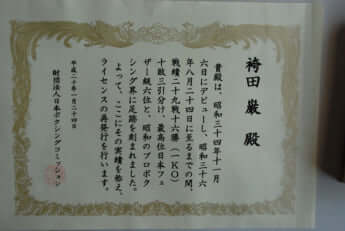 袴田 巖 殿
貴殿は、昭和三十四年十一月
六日にデビューし、昭和三十六
年八月二十四日に至るまでの間、
戦績二十九戦十六勝(一KO)
十敗三引分け、最高位日本フェ
ザー級六位と、昭和のプロボク
シング界に足跡を刻まれました。
よって、ここにその実績を称え、
ライセンスの再発行を行います。
平成二十年一月二十四日
財団法人日本ボクシングコミッション